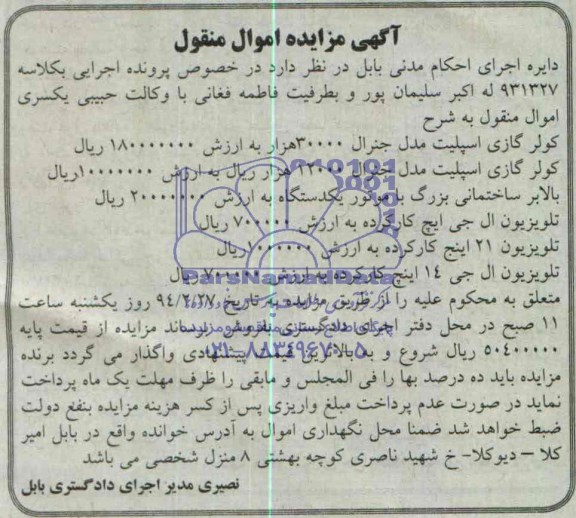 آگهی مزایده اموال منقول
دایره اجرای احکام مدنی بابل در نظر دارد در خصوص پرونده اجرایی بکلاسه
۹۳۱۳۲۷ له اکبر سلیمان پور و بطرفیت فاطمه فغانی با وکالت حبیبی یکسری
اموال منقول به شرح
کولر گازی اسپلیت مدل جنرال ۳۰۰۰۰هزار به ارزش ۱۸۰۰۰۰۰۰ ریال
کولر گازی اسپلیت مدل جنرال ۲۲۰۰۰ هزار ریال به ارزش ۱۰۰۰۰۰۰۰ریال
بالابر ساختمانی بزرگ با موتور یکدستگاه به ارزش ۲۰۰۰۰۰۰۰ ریال
تلویزیون ال جی ایج کارکرده به ارزش ۷۰۰۰۰۰ ریال
تلویزیون ۲۱ اینچ کارکرده به ارزش ۱۰۰۰۰۰۰ریال
تلویزیون ال جی ۱۴ اینچ کارکرده به ارزش ۷۰۰۰۰۰ ریال
ParsNamadData
متعلق به محکوم علیه را از طریق مزایده به تاریخ ۹۴/۲/۲۷ روز یکشنبه ساعت
۱۱ صبح در محل دفتر اجرای دادگستری بفروش برساند مزایده از قیمت پایه
۵۰۴۰۰۰۰۰ ریال شروع و به بالاترین قیمت پیشنهادی واگذار می گردد برنده
۰۲۱-۸۸۳۴۹۶۷۰-۵
مزایده باید ده درصد بها را فی المجلس و مابقی را ظرف مهلت یک ماه پرداخت
نماید در صورت عدم پرداخت مبلغ واریزی پس از کسر هزینه مزایده بنفع دولت
ضبط خواهد شد ضمنا محل نگهداری اموال به آدرس خوانده واقع در بابل امیر
کلا – دیوکلا- خ شهید ناصری کوچه بهشتی ۸ منزل شخصی می باشد
نصیری مدیر اجرای دادگستری بابل